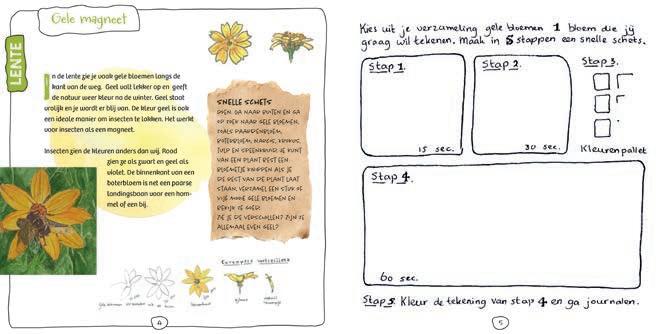 Gele magneet
LENTE
In de lente zie je vaak gele bloemen langs de
kant van de weg. Geel valt lekker op en geeft
de natuur weer kleur na de winter. Geel staat
vrolijk en je wordt er blij van. De kleur geel is ook
een ideale manier om insecten te lokken. Het werkt
voor insecten als een magneet.
Insecten zien de kleuren anders dan wij. Rood
zien ze als zwart en geel als
violet. De binnenkant van een
boterbloem is net een paarse
landingsbaan voor een hom-
mel of een bij.
SNELLE SCHETS
DOEN: GA NAAR BUITEN EN GA
OP ZOEK NAAR GELE BLOEMEN,
ZOALS PAARDENBLOEM,
BOTERBLOEM, NARCIS, KROKUS,
TULP EN SPEENKRUID. JE KUNT
VAN EEN PLANT BEST EEN
BLOEMETJE KNIPPEN ALS JE
DE REST VAN DE PLANT LAAT
STAAN. VERZAMEL EEN STUK OF
VIJF MOOIE GELE BLOEMEN EN
BEKIJK ZE GOED.
ZIE JE DE VERSCHILLEN? ZIJN ZE
ALLEMAAL EVEN GEEL?
4
Kies uit je verzameling gele bloemen 1 bloem die jij
graag wil tekenen. Maak in 5 stappen een snelle schets.
Stap 1.
15 sec.
Stap 2.
30 sec.
Stap 3.
Kleurenpallet
Stap 4.
60 sec.
Stap 5. Kleur de tekening van stap 4 en ga journalen.
5